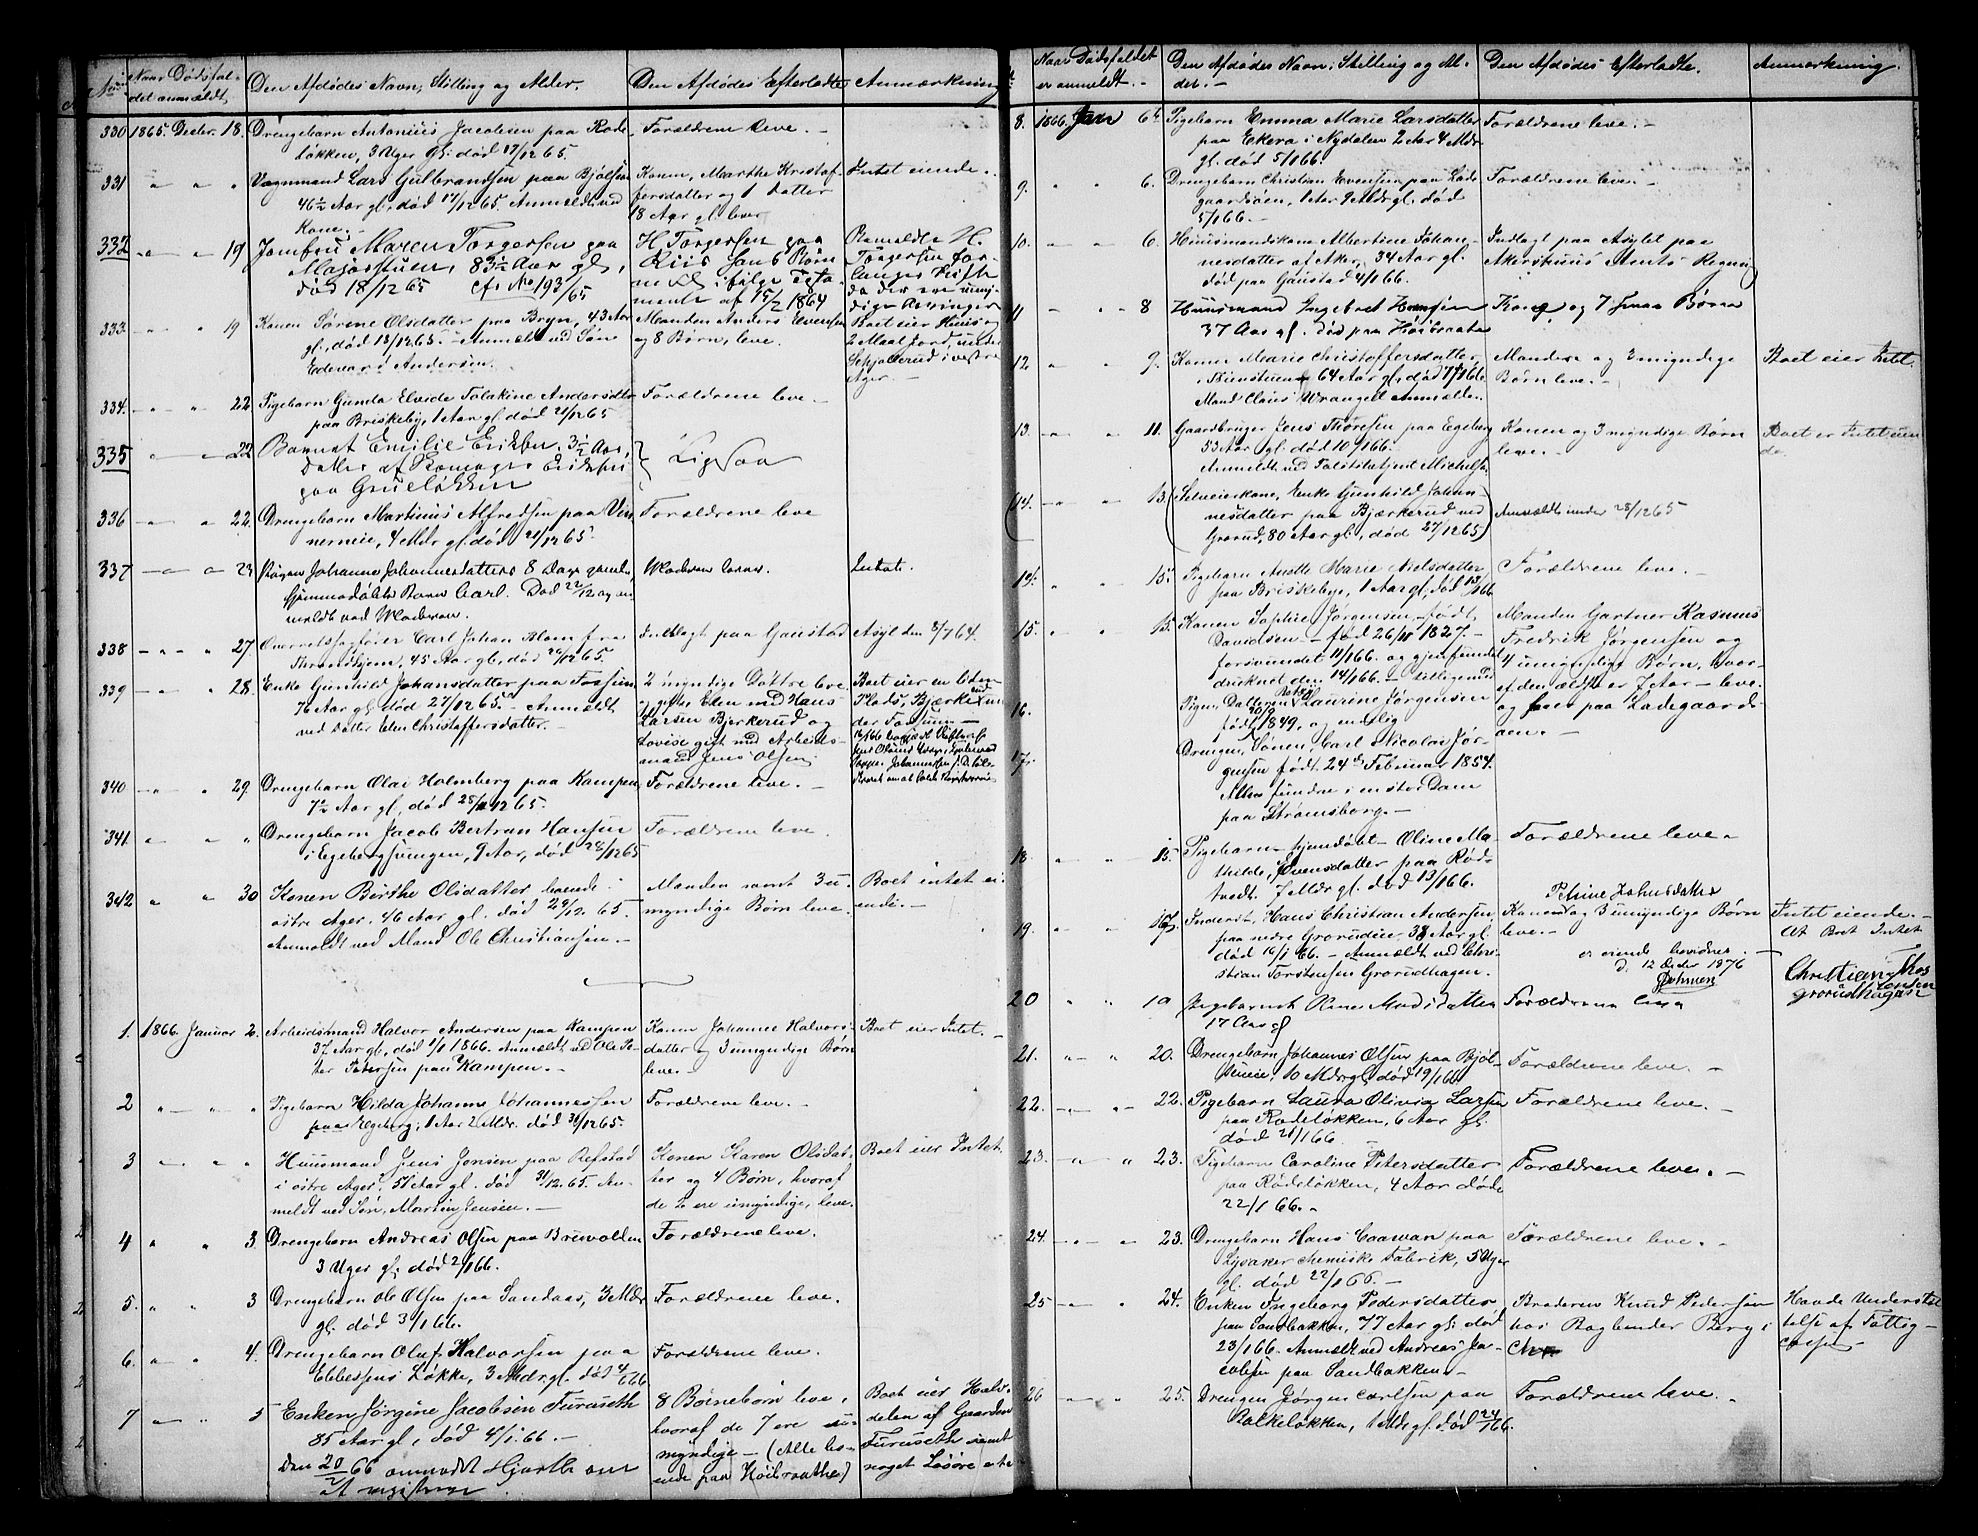 No
Naar Dødsfal-
det anmeldt,
Den Afdødes Navn, Stilling og Alder.
Den Afdødes Efterladte
Anmærkning
330 1865. Decbr. 18. Drengebarn Antonius Jacobsen paa Rode-
løkken, 3 Uger gl. død 17/12 65.
Forældrene leve. –
331 " " " Vognmand Lars Gulbrandsen paa Bjølsen
46½ Aar gl., død 17/12 65. Anmeldt ved
Kone. –
Konen, Marthe Kristof-
fersdatter og 1 datter
18 Aar gl. lever
Intet eiende.
332 – " – " 19 Jomfru Maren Torgersen paa
Majorstuen, 83½ Aar gl.,
død 18/12 65 cfr No 193/65
H. Torgersen paa
Riis samt Børn
ifølge Testa-
mente af 15/2 1864
H.
Torgersen for-
langer Skifte
da der ere umyn-
dige Arvinger
333. – " " 19 Konen Sørine Olsdatter paa Bryn, 43 Aar
gl., død 13/12 65. – Anmeldt ved Søn
Edevard Andersen.
Manden Anders Evensen
og 8 Børn, leve.
Boet eier Huus og
2 Maal Jord, under
i vestre
Ager. –
334. – " – " 22 Pigebarn Gunda Elvide Andersdtr
paa Briskeby, 1 Aar gl. død 21/12 65
Forældrene leve –
335 – " – 22 Barnet Emilie Eriksen 3½ Aar,
datter af Eriksen
paa Grueløkken
Ligesaa
336 – " – " 22. Drengebarn Martinius Alfredsen paa Vin-
nerneie, 4 Mdr gl. død 21/12 65.
Forældrene leve
337 – " – " 23 Pigen Johanne Johannesdatters 8 Dage gamle,
hjemmedøbte Barn Carl. Død 22/12 og an-
meldt ved Moderen.
Moderen lever.
Intet.
338 – " – " 27. Overretssagfører Carl Johan Blom fra
Throndhjem, 45 Aar gl., død 24/12 65.
Indlagt paa Gaustad
Asyl den 8/7 64.
339 – " – " 28. Enke Gunhild Johansdatter paa Fossum,
76 Aar gl. død 27/12 65. – Anmeldt
ved Datter Elen Christoffersdatter.
2 myndige Døttre leve
gifte, Elen med Hans
Larsen Bjerkerud og
Lovise gift med Arbeids-
mand Jens Olsen
Boet eier en liden
Plads, Bjerkerud un-
der Fossum –
340 – " – " 29. Drengebarn Olai Holmberg paa Kampen,
7½ Aar gl., død 28/12 65.
Forældrene leve. –
341. " " " Drengebarn Jacob Bertran Hansen
i Egebergsvingen, 9 Aar, død 28/12 65
Forældrene leve.
342 " " 30 Konen Birthe Olsdatter boende i
østre Ager. 46 Aar gl. død 29/12. 65.
Anmeldt ved Mand Ole Christiansen. –
Manden samt 3 u-
myndige Børn leve.
Boet intet ei-
ende. –
1. 1866. Januar 2. Arbeidsmand Halvor Andersen paa Kampen
37 Aar gl., død 1/1 1866. Anmeldt ved Ole Pe-
ter Pedersen paa Kampen. –
Konen Johanne Halvors-
datter og 3 umyndige Børn
leve. –
Boet eier Intet. –
2 " – " – " Pigebarn Hilda Johanne Johannessen
paa Egeberg, 1 Aar 2 Mdr. død 31/12 65.
Forældrene leve. –
3 – " – " " Huusmand Jens Jensen paa Refstad
i østre Ager, 51 Aar gl. død 31/12. 65. An-
meldt ved Søn, Martin Jensen. –
Konen Karen Olsdat-
ter og 4 Børn, hvoraf
de 2 ere umyndige, leve.
Boet eier Intet.
4 " " 3 Drengebarn Andreas Olsen paa Breivolden
3 Uger gl. død 2/1 66.
Forældrene leve.
5. " " 3 Drengebarn Ole Olsen paa Sandaas, 3 Mdr
gl. død 3/1 66.
Forældrene leve.
6. " – " 4. Drengebarn Oluf Halvorsen paa
Ebbesens Løkke, 3 Mdr gl. død 4/1 66
Forældrene leve.
7 " – " 5 Enken Jørgine Jacobsen Furuseth
85 Aar gl., død 4/1. 66. –
Den 20/2 66 anmodet Hjorth om
at registrere
8 Børnebørn leve,
hvoraf de 7 ere u-
myndige – (Alle bo-
ende paa Høibraathen)
Boet eier Halv-
delen af Gaarden
Furuseth samt
noget Løsøre
Naar Dødsfaldet
er anmeldt. –
Den Afdødes Navn, Stilling og Al-
der. –
Den Afdødes Efterladte.
Anmærkning.
8. 1866. Jan 6te Pigebarn Emma Marie Larsdatter
paa Ekera i Nydalen 2 Aar 4 Mdr.
gl. død 5/1 66.
Forældrene leve. –
9. " " 6. Drengebarn Christian Evensen paa Lade-
gaardsøen, 1 Aar 9 Mdr gl. død
5/1 66. –
Forældrene leve. –
10. – " – " 6. Huusmandskone Albertine Johan-
nesdatter af Aker, 34 Aar gl.
død paa Gaustad 4/1 66.
Indlagt paa Asylet paa
Akershuus Amts Regning
11 – " – 8 Huusmand Ingebret Hansen
37 Aar gl. død paa Høibraaten
Kone og 7 smaa Børn
12. " " 9. Konen Marie Christoffersdatter
64 Aar gl., død 7/1 66.
Mand Claus Wrangell Anmelder. –
Manden og 2 myndige
Børn leve. –
Boet eier Intet.
13. – " " 11. Gaardbruger Jens Thoresen paa Egeberg
53 Aar gl. død 10/1 66.
Anmeldt ved Politibetjent Michelsen
Konen og 3 myndige Børn
leve. –
Boet er Intet eien-
de.
(14. – " " 13. (Selveierkone, Enke Gunhild Johan-
nesdatter paa Bjærkerud ved
Grorud, 80 Aar gl., død 27/12 65)
Anmeldt under 28/12 65
14. " " 15. Pigebarn Anette Marie Nielsdatter
paa Briskeby, 1 Aar gl. død 13/1 66
Forældrene leve. –
15. " " 15. Konen Sophie Jørgensen, født
Davidsen – født 26/11 1827. –
forsvundet 11/1 66. og gjenfundet
druknet den 14/1 66. – tilligemed
16. Pigen, Datteren Laurine Jørgensen
født 1849, og endelig
17. Drengen, Sønen, Carl Nicolai Jør-
gensen født 24de Februar 1854.
Alle fundne i en stor Dam
paa Strømsborg. –
Manden Gartner Rasmus
Fredrik Jørgensen og
4 umyndige Børn, hvor-
af den ældste er 7 Aar – leve
og boer paa Ladegaards-
øen. –
18. " " 15. Pigebarn – hjemdøbt – Oline Ma-
thilde, Evensdatter paa Rød-
tvedt, 7 Mdr gl. død 13/1 66.
Forældrene leve.
19. " " 17. Inderst, Hans Christian Andersen
paa nedre Grorudeie, 38 Aar gl.
død 16/1 66. – Anmeldt ved Chri-
stian Torstensen Grorudhagen.
Petrine Johnsdatter
Konen og 3 umyndige Børn
leve. –
er eiende bevidnes
D. 12 Decbr 1876
Intet eiende. –
At Boet Intet
Christian Thor
stensen
Grorudhagen
20 " " 19 Pigebarnet Rines Madsdatter
17 Aar gl
Forældrene leve
21. " – " 20. Drengebarn Johannes Olsen paa Bjøl-
seneie, 10 Mdr gl. død 19/1 66
Forældrene leve. –
22. – " – 22. Pigebarn Laura Olivia Larsen
paa Rodeløkken, 6 Aar gl.
død 21/1 66.
Forældrene leve. –
23. – " – " 23. Pigebarn Caroline Petersdatter
paa Rodeløkken, 4 Aar døde
22/1 66. –
Forældrene leve. –
24. – " – " 23. Drengebarn Hans Caawan paa
Lysaker chemiske Fabrik, 5 Uger
gl. død 22/1 66. –
Forældrene leve. –
25 – " – " 24. Enken Ingeborg Pedersdatter
paa Sandbakken, 77 Aar gl. død
23/1 66. Anmeldt ved Andreas Ja-
cobsen paa Sandbakken. –
Broderen Knud Pedersen
hos Bogbinder Berg i
Chra
Havde Understøt-
telse af Fattig-
casse –
26 – " – " 25. Drengen Jørgen Carlsen paa
Balkeløkken, 1 Mdr gl. død 24/1 66.
Forældrene leve.